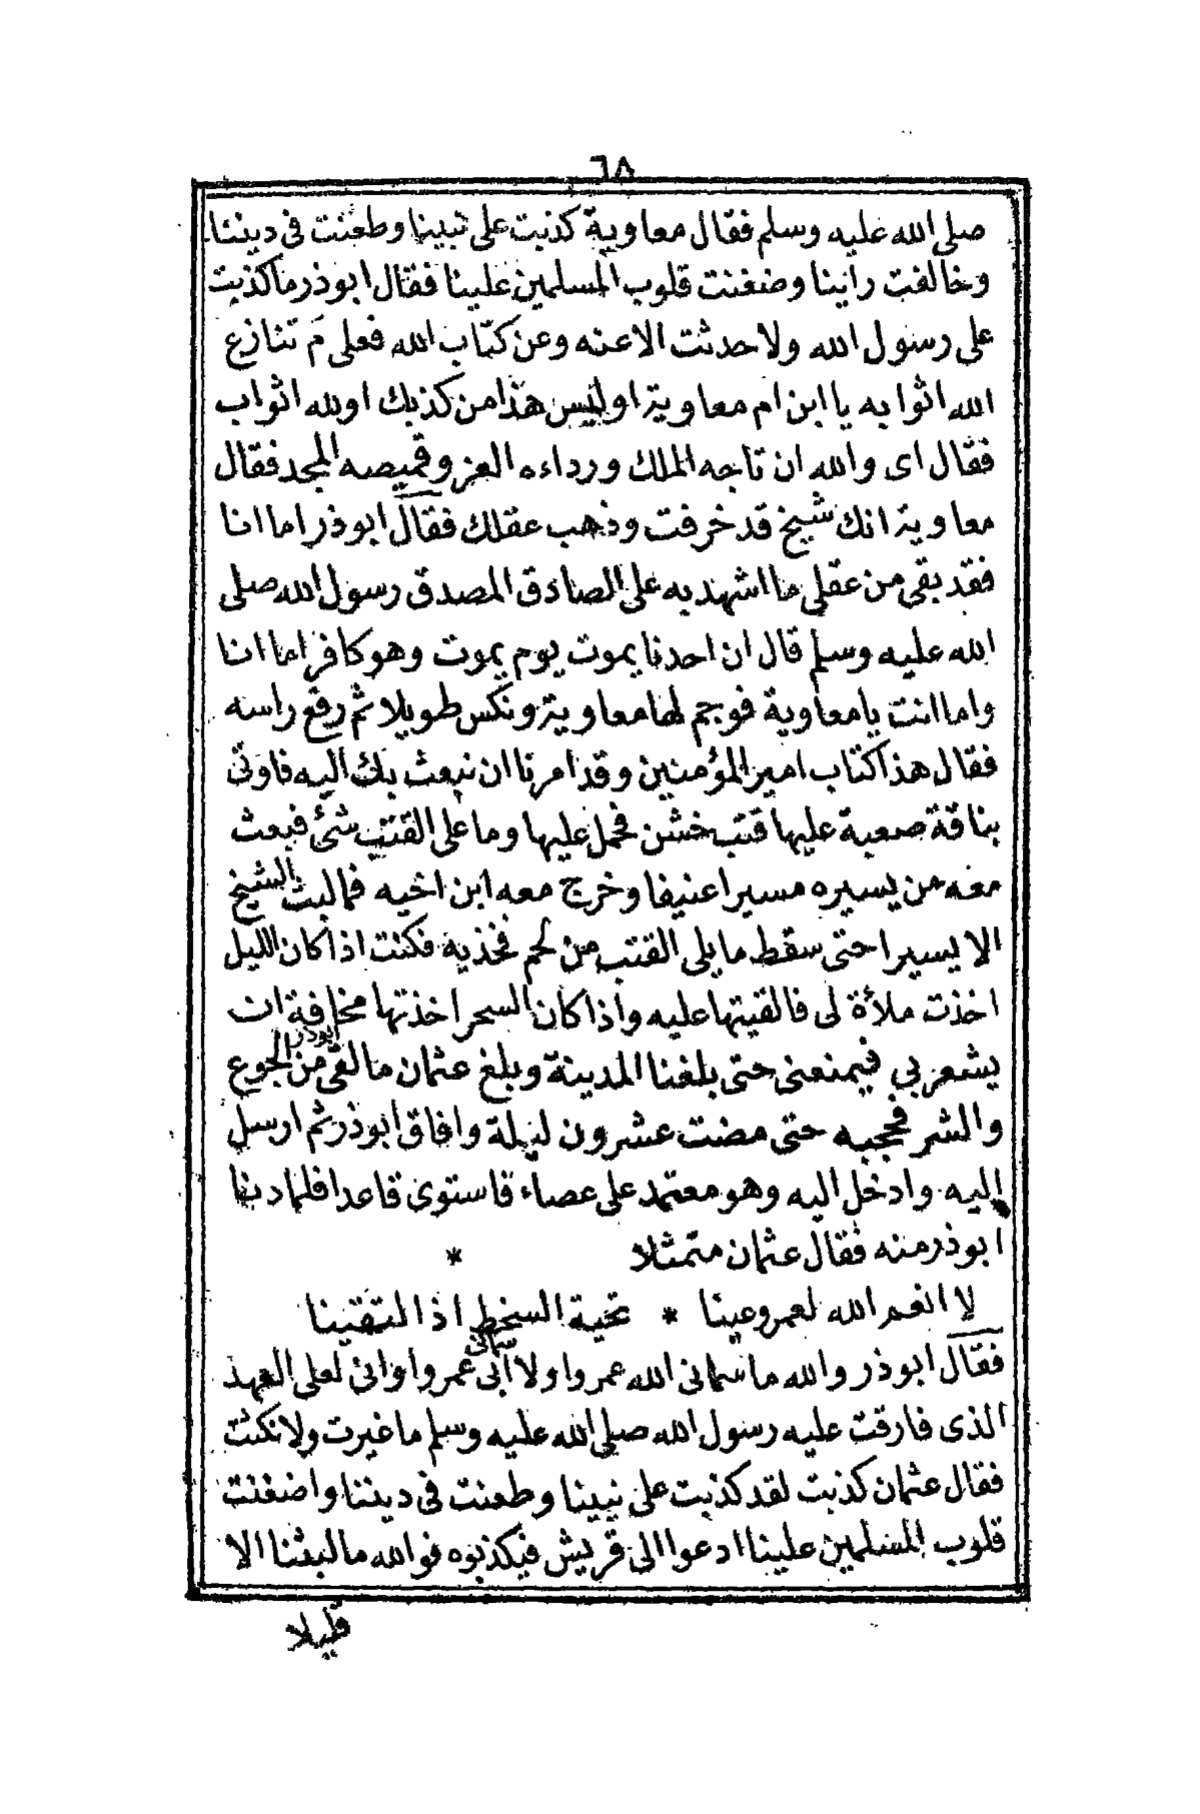 ٦٨
صلى الله عليه وسلم فقال معاوية كذبت على نبينا وطعنت فى ديننا
وخالفت راينا وضغنت قلوب المسلمين علينا فقال ابوذر ما كذبت
على رسول الله ولا حدثت الا عنه وعن كتاب الله فعلى م تنازع
الله اثوابه يا ابن ام معاوية اوليس هذا من كذبك اولله اثواب
فقال اى والله ان تاجه الملك ورداءه العز وقميصه المجد فقال
معاوية انك شيخ قد خرفت وذهب عقلك فقال ابوذر اما انا
فقد بقى من عقلى ما اشهد به على الصادق المصدق رسول الله صلى
الله عليه وسلم قال ان احدنا يموت يوم يموت وهو كافر اما انا
واما انت يا معاوية فوجم لها معاوية ونكس طويلا ثم رفع راسه
فقال هذا كتاب امير المؤمنين وقد امرنا ان نبعث بك اليه فاوتى
بناقة صعبة عليها قتب خشن فحمل عليها وما على القتب شئ فبعث
معه من يسيره مسيرا عنيفا وخرج معه ابن اخيه فما لبث الشيخ
الا يسيرا حتى سقط ما يلى القتب من لحم فخذيه فكنت اذا كان الليل
اخذت ملأة لى فالقيتها عليه واذا كان السحر اخذتها مخافة ان
يشعر بي فيمنعنى حتى بلغنا المدينة وبلغ عثمان ما لقى ابوذر من الجوع
والشر فحجبه حتى مضت عشرون ليلة وافاق ابوذر ثم ارسل
اليه وادخل اليه وهو معتمد على عصاء فاستوى قاعدا فلما دنا
ابوذر منه فقال عثمان متمثلا *
لا انعم الله لعمرو عينا * تحية السخط اذا التقينا
فقال ابوذر والله ما سمانى الله عمروا ولا سمانى ابى عمروا وانى لعلى العهد
الذى فارقت عليه رسول الله صلى الله عليه وسلم ما غيرت ولا نكثت
فقال عثمان كذبت لقد كذبت على نبينا وطعنت فى ديننا واضغنت
قلوب المسلمين علينا ادعوا الى قريش فيكذبوه فوالله ما لبثنا الا
قليلا